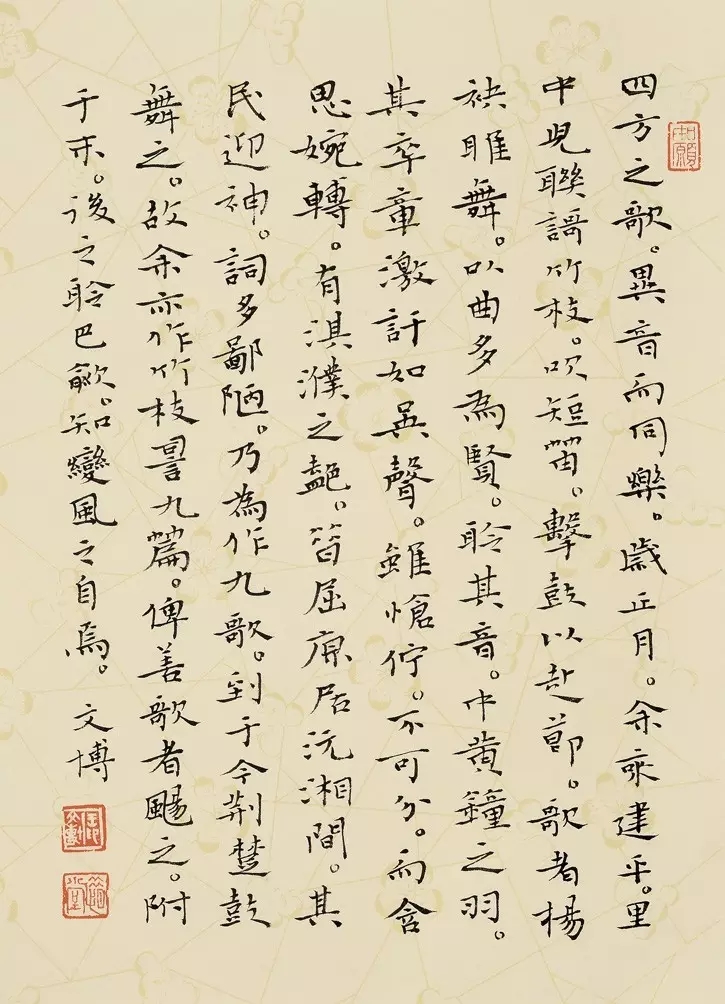 四方之歌。異音而同樂。歲正月。余來建平。里
中兒聯謌竹枝。吹短笛。擊鼓以赴節。歌者楊
袂睢舞。以曲多為賢。聆其音。中黃鐘之羽。
其卒章激訐如吳聲。雖愴儜。不可分。而含
思婉轉。有淇濮之艷。昔屈原居沅湘間。其
民迎神。詞多鄙陋。乃為作九歌。到于今荊楚鼓
舞之。故余亦作竹枝詈九篇。俾善歌者颺之。附
于末。後之聆巴歈。知變風之自焉。文博
如願